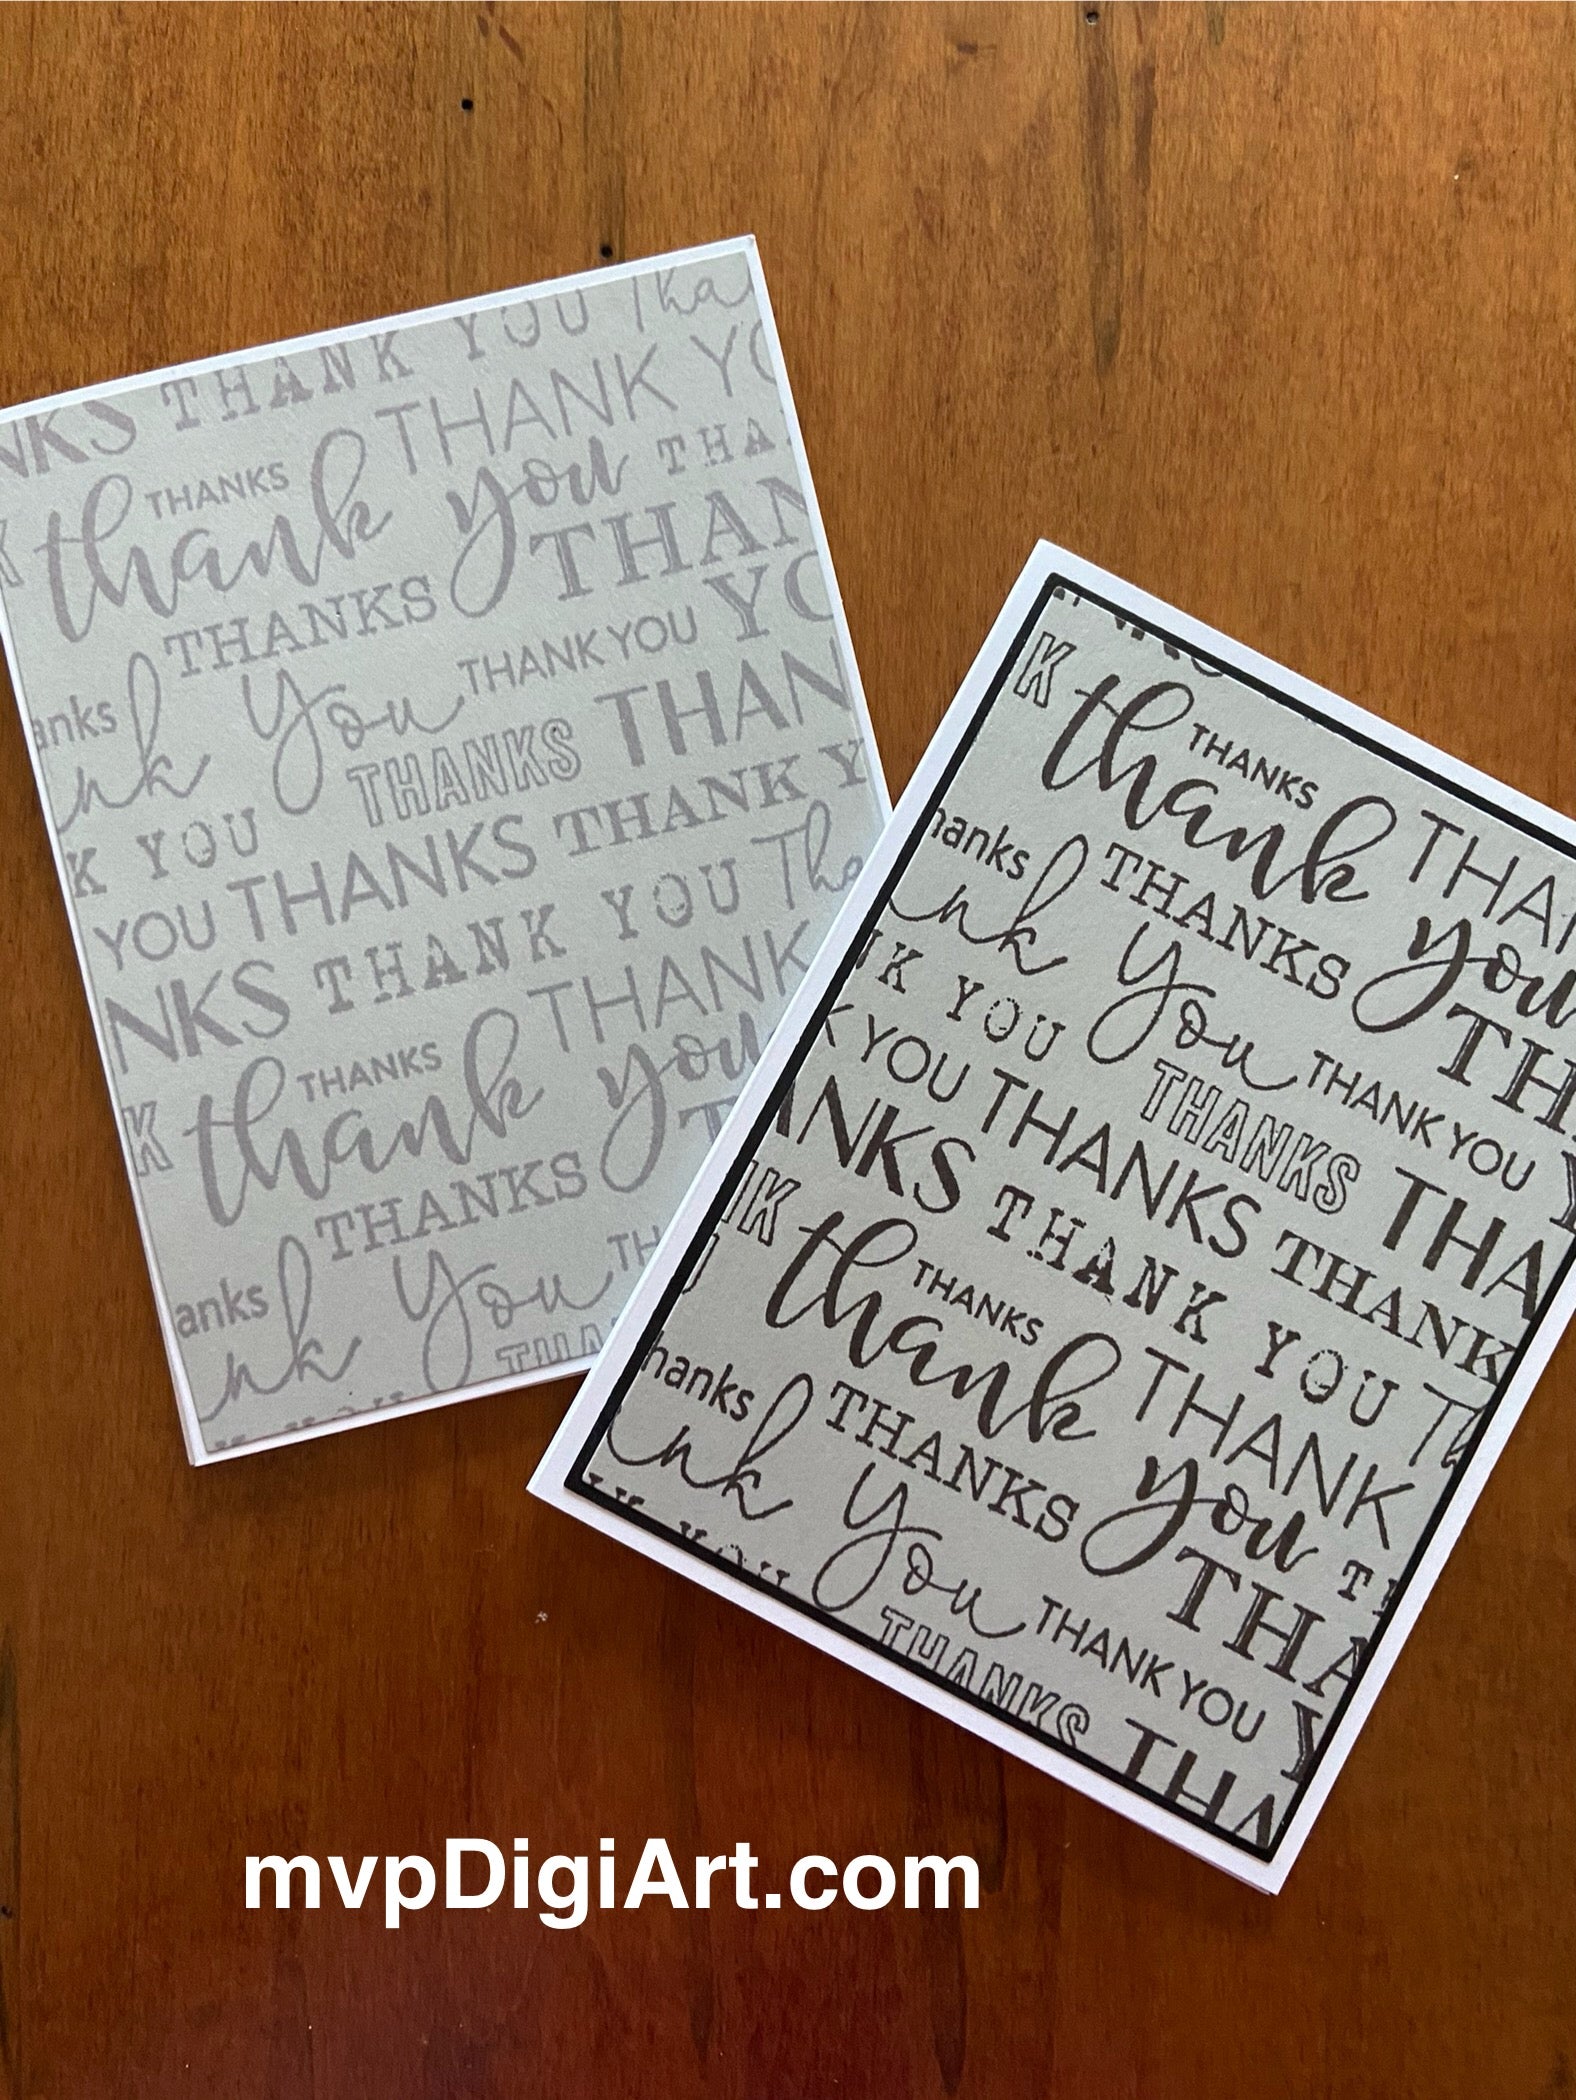 NKS THANK YOU Tha
THANKS thank you THANK YO
K THANKS THAN
THANKS THAN
anks nk You THANK YOU YO
THANKS THAN
K YOU THANKS THANK Y
YOU THANKS THANK YOU Tha
NKS THANK YOU THANK
K THANKS thank you
THANKS TH
anks nk You
THANKS
K thank THANKS THAN
hanks THANKS you
nk You THANK YOU TH
NK YOU THANKS THA
K YOU THANKS THANK
NKS THANK YOU Th
NK thank THANKS THANK
hanks THANKS you TH
nk You THANK YOU THA
K YOU THANKS THA
mvpDigiArt.com